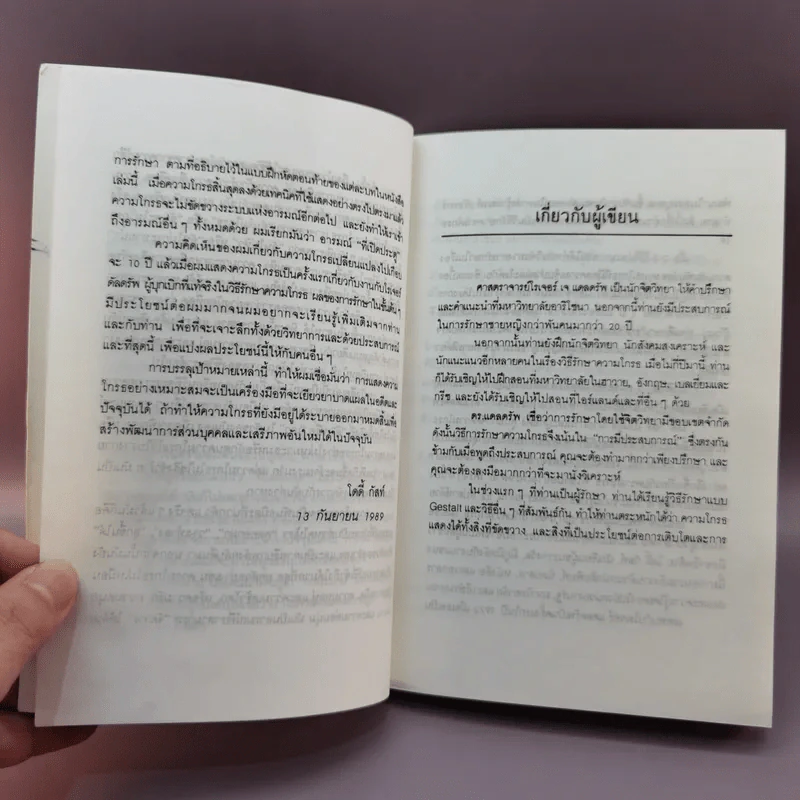 การรักษา ตามที่อธิบายไว้ในแบบฝึกหัดตอนท้ายของแต่ละบทในหนังสือ
เล่มนี้ เมื่อความโกรธสิ้นสุดลงด้วยเทคนิคที่ใช้แสดงอย่างตรงไปตรงมาแล้ว
ความโกรธจะไม่ขัดขวางระบบแห่งอารมณ์อีกต่อไป และยังทำให้เราเข้า
ถึงอารมณ์อื่น ๆ ทั้งหมดด้วย ผมเรียกมันว่า อารมณ์ "ที่เปิดประตู"
ความคิดเห็นของผมเกี่ยวกับความโกรธเปลี่ยนแปลงไปเกือบ
จะ 10 ปี แล้วเมื่อผมแสดงความโกรธเป็นครั้งแรกเกี่ยวกับงานกับโรเจอร์
ดัลดรัพ ผู้บุกเบิกที่แท้จริงในวิธีรักษาความโกรธ ผลของการรักษาในขั้นต้น ๆ
มีประโยชน์ต่อผมมากจนผมอยากจะเรียนรู้เพิ่มเติมจากท่าน
และกับท่าน เพื่อที่จะเจาะลึกทั้งด้วยวิทยาการและด้วยประสบการณ์
และที่สุดนี้ เพื่อแบ่งผลประโยชน์นี้ให้กับคนอื่น ๆ
การบรรลุเป้าหมายเหล่านี้ ทำให้ผมเชื่อมั่นว่า การแสดงความ
โกรธอย่างเหมาะสมจะเป็นเครื่องมือที่จะเยียวยาบาดแผลในอดีตและ
ปัจจุบันได้ ถ้าทำให้ความโกรธที่ยังมีอยู่ได้ระบายออกมาหมดสิ้นเพื่อ
สร้างพัฒนาการส่วนบุคคลและเสรีภาพอันใหม่ได้ในปัจจุบัน
โดดี้ กัสท์
13 กันยายน 1989
เกี่ยวกับผู้เขียน
ศาสตราจารย์โรเจอร์ เจ แดลดรัพ เป็นนักจิตวิทยา ให้คำปรึกษา
และคำแนะนำที่มหาวิทยาลัยอาริโซนา นอกจากนี้ท่านยังมีประสบการณ์
ในการรักษาชายหญิงกว่าพันคนมากว่า 20 ปี
นอกจากนั้นท่านยังฝึกนักจิตวิทยา นักสังคมสงเคราะห์ และ
นักแนะแนวอีกหลายคนในเรื่องวิธีรักษาความโกรธ เมื่อไม่กี่ปีมานี้ ท่าน
ก็ได้รับเชิญให้ไปฝึกสอนที่มหาวิทยาลัยในฮาวาย, อังกฤษ, เบลเยี่ยมและ
กรีซ และยังได้รับเชิญให้ไปสอนที่ไอร์แลนด์และที่อื่น ๆ ด้วย
ดร.แดลดรัพ เชื่อว่าการรักษาโดยใช้จิตวิทยามีขอบเขตจำกัด
ดังนั้นวิธีการรักษาความโกรธจึงเน้นใน "การมีประสบการณ์" ซึ่งตรงกัน
ข้ามกับเมื่อพูดถึงประสบการณ์ คุณจะต้องทำมากกว่าเพียงปรึกษา และ
คุณจะต้องลงมือมากกว่าที่จะมานั่งวิเคราะห์
ในช่วงแรก ๆ ที่ท่านเป็นผู้รักษา ท่านได้เรียนรู้วิธีรักษาแบบ
Gestalt และวิธีอื่น ๆ ที่สัมพันธ์กัน ทำให้ท่านตระหนักได้ว่า ความโกรธ
แสดงได้ทั้งสิ่งที่ขัดขวาง และสิ่งที่เป็นประโยชน์ต่อการเติบโตและการ